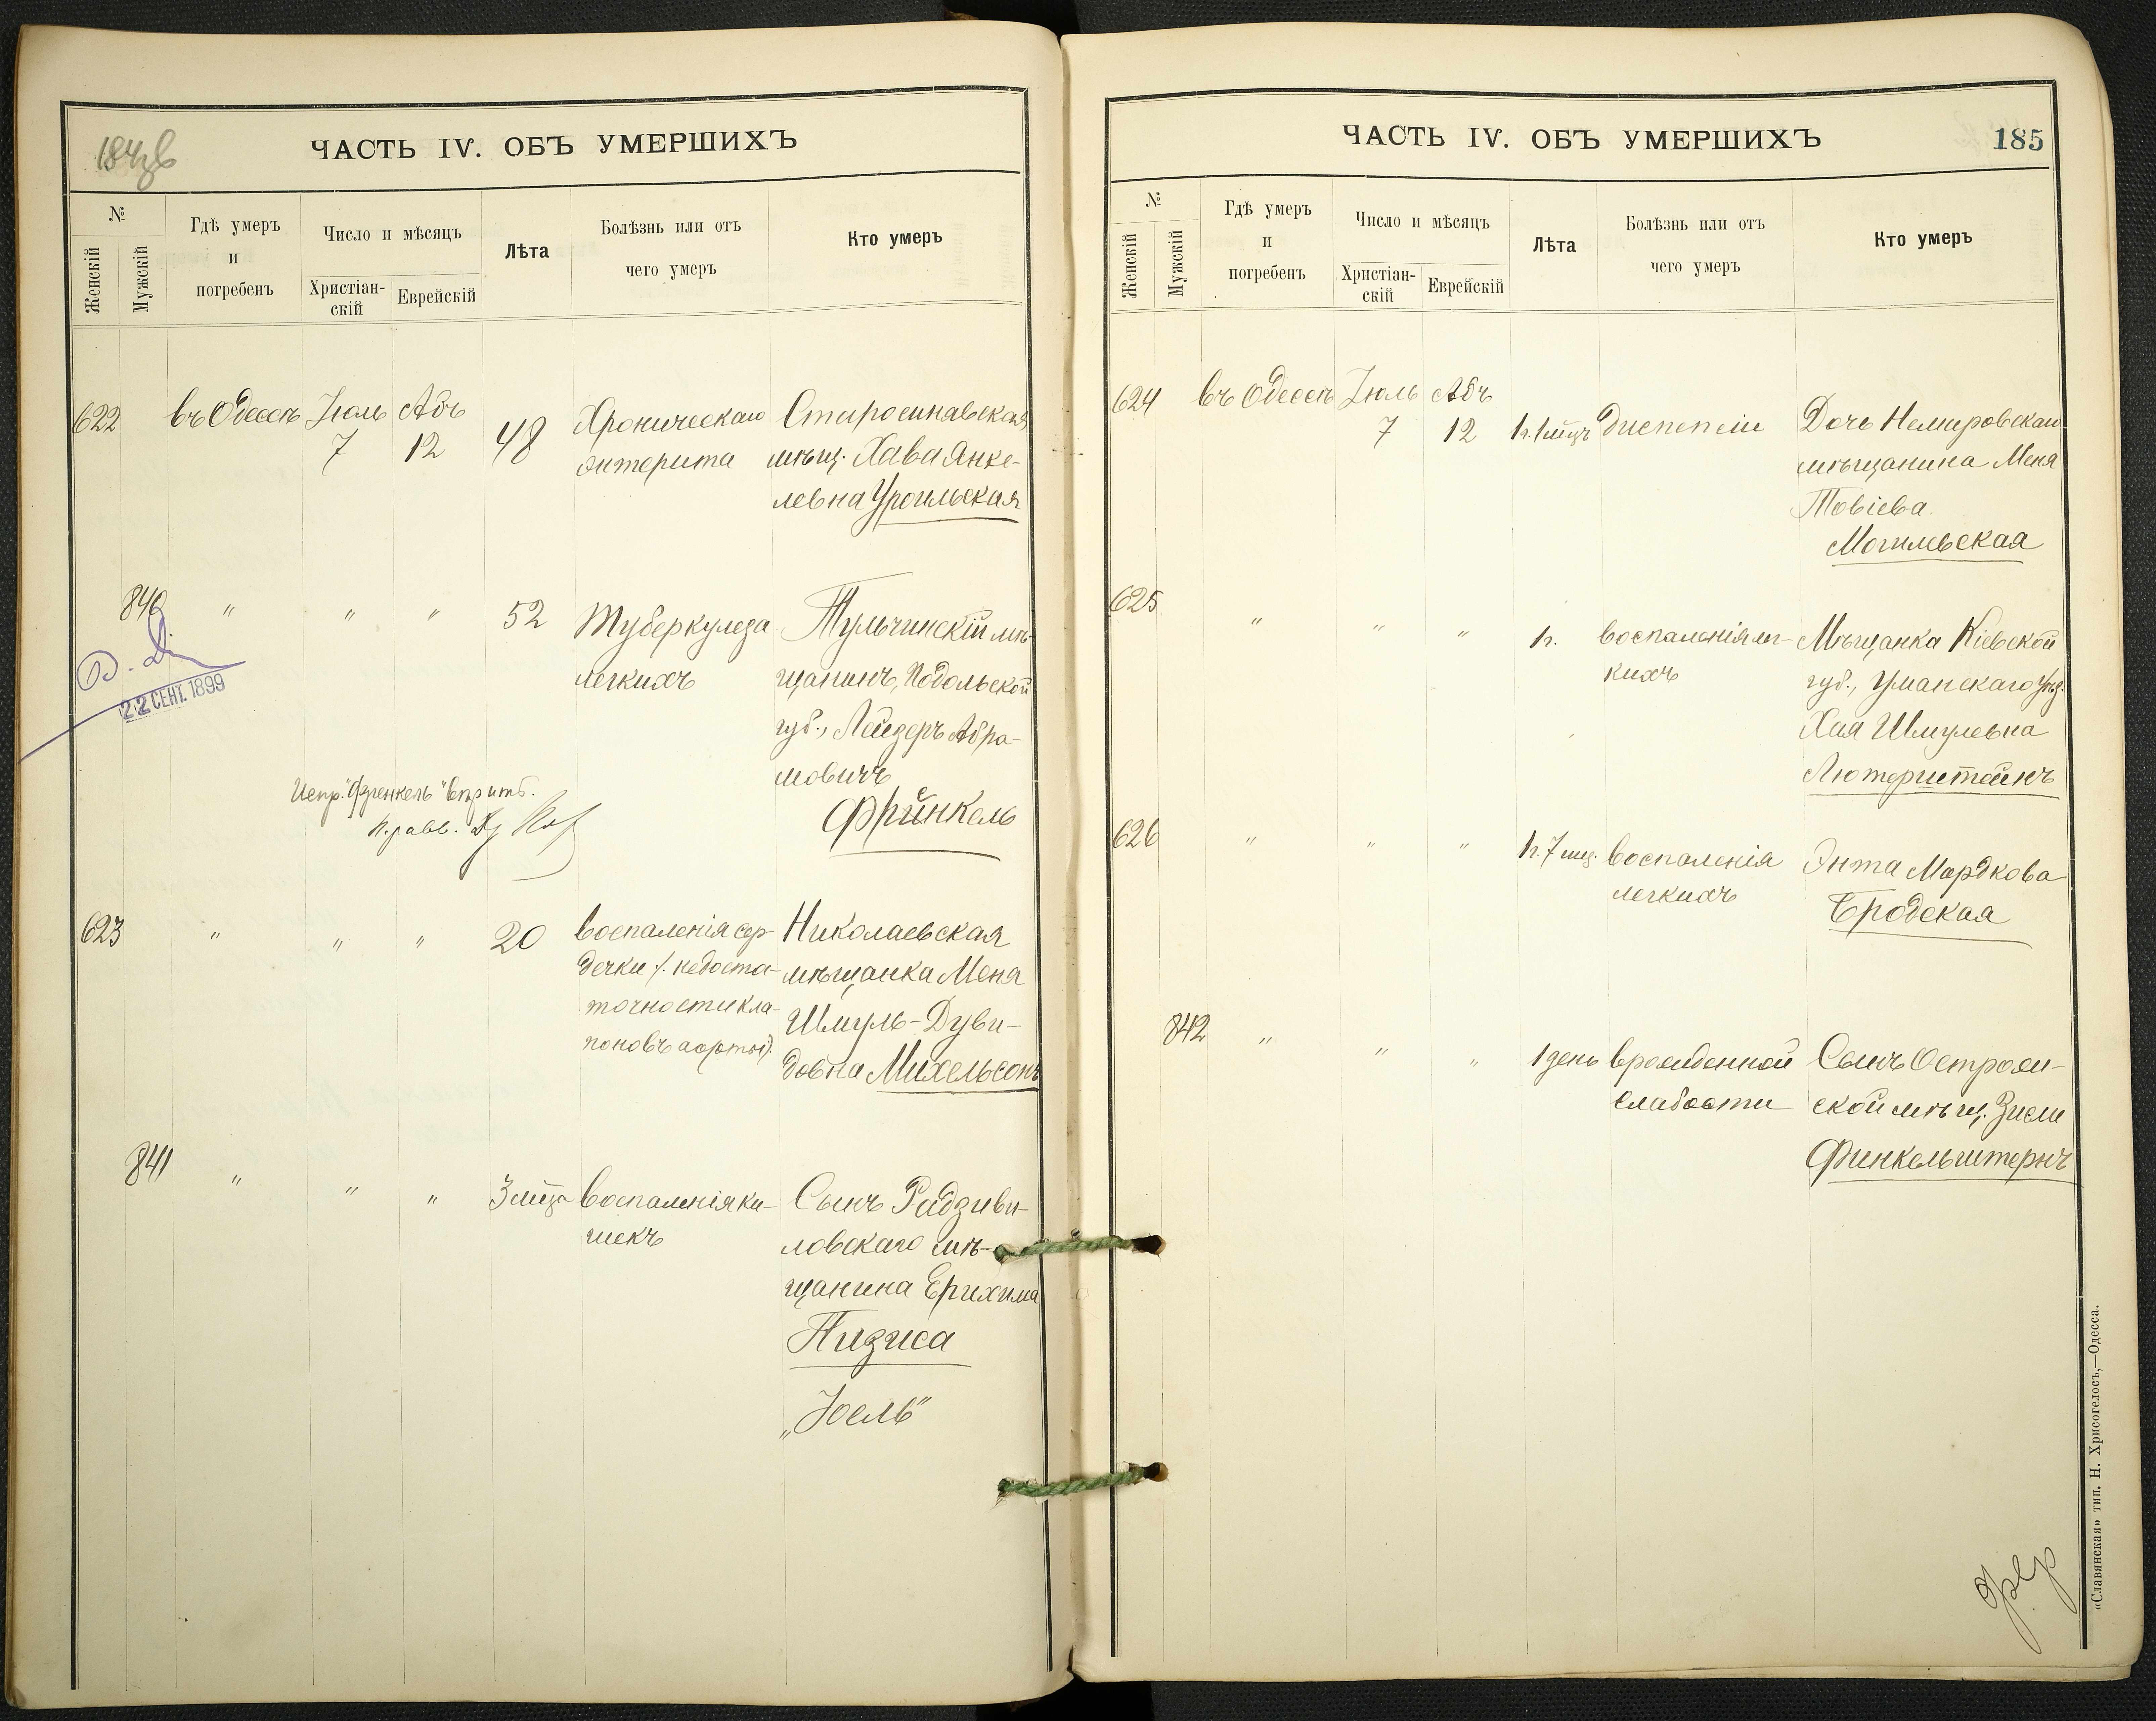 184об
ЧАСТЬ IV. ОБЪ УМЕРШИХЪ
№
Женскій
Мужскій
Гдѣ умеръ
и
погребенъ
Число и мѣсяцъ
Христіан-
скій
Еврейскій
Лѣта
Болѣзнь или отъ
чего умеръ
Кто умеръ
622 въ Одессѣ Іюль 7 Абъ 12 48
Хроническаго
энтерита
Старосинавская
мѣщ. Хава Янке-
левна
840 " " " 52
Туберкулеза
легкихъ
Тульчинскій мѣ-
щанинъ, Подольской
губ., Лейзеръ Абра-
мовичъ
Френкель
22 СЕНТ. 1899
Испр. "Френкель" вѣрить.
623 " " " 20
Воспаленія сер-
дечки (недоста-
точности кла-
пановъ аорты).
Николаевская
мѣщанка Меня
Шмуль-Дуви-
довна Михельсонъ
841 " " " 3 мѣц.
Воспаленія ки-
шекъ
Сынъ Радзиви-
ловскаго мѣ-
щанина Ерихима
Пизиса
„Іосль"
ЧАСТЬ IV. ОБЪ УМЕРШИХЪ
185
№
Женскій
Мужскій
Гдѣ умеръ
и
погребенъ
Число и мѣсяцъ
Христіан-
скій
Еврейскій
Лѣта
Болѣзнь или отъ
чего умеръ
Кто умеръ
624 въ Одессѣ Іюль 7 Абъ 12 1г. 1 мѣц.
диспепсіи
Дочь Немировскаго
мѣщанина Меня
Товіева
Могилевская
625 " " " 1г.
воспаленія лег-
кихъ
Мѣщанка Кіевской
губ., Уманскаго уѣз.
Хая Шмулевна
Лютерштейнъ
626 " " " 1г. 7 мц.
воспаленія
легкихъ
Энта Мордкова
Бродская
842 " " " 1 день
врожденной
слабости
Сынъ
ской мѣщ. Зиси
Финкельштернъ
«Славянская» тип. Н. Хрисогелосъ,—Одесса.